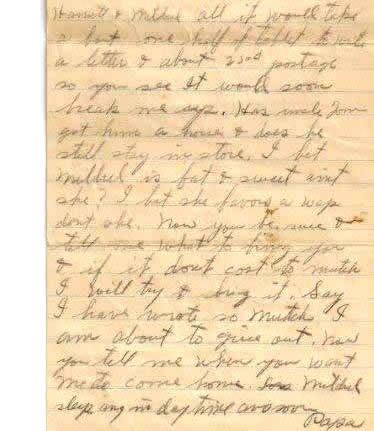 Harriett & Mildred all it would take
a bout one half of tablet to write
a letter & about 23cts postage
so you see It would soon
break me up. Has uncle Tom
got him a house & does he
still stay in store. I bet
Mildred is fat & sweet aint
she? I bet she favors a wap
dont she. Now you be sure &
tell me what to bring you
& if it dont cost to mutch
I will try & bring it. Say
I have wrote so mutch I
am about to give out. Now
you tell me when you want
me to come home. Mildred
sleep any in day time
Papa